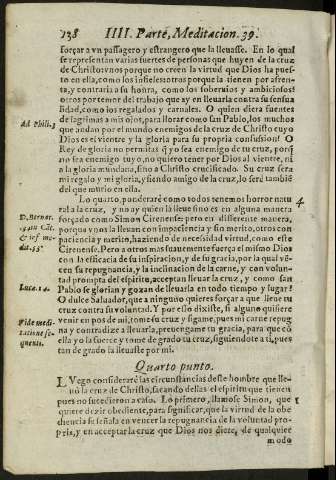 138 IIII. Parte, Meditacion. 39.
forçar a vn passagero y estrangero que la lleuasse. En lo qual
se representan varias suertes de personas que huyen de la cruz
de Christo: vnos porque no creen la virtud que Dios ha pues-
to en ella, como los infieles: otros porque la tienen por afren-
ta, y contraria a su honra, como los soberuios y ambiciosos:
otros por temor del trabajo que ay en lleuarla contra su sensua
lidad, como los regalados y carnales. O quien diera fuentes
de lagrimas a mis ojos, para llorar como san Pablo, los muchos
Ad Phili. 3
que andan por el mundo enemigos de la cruz de Christo cuyo
Dios es el vientre y la gloria para su propria confusion! O
Rey de gloria no permitas que yo sea enemigo de tu cruz, porque
no sea enemigo tuyo, no quiero tener por Dios al vientre, ni
a la gloria mundana, sino a Christo crucificado. Su cruz sera
mi regalo y mi gloria, y siendo amigo de la cruz, lo seré tambiē
del que murio en ella.
Lo quarto, ponderaré como todos tenemos horror natu
4
ral a la cruz, y no ay quien la lleue sino es en alguna manera
D. Bernar.
forçado como Simon Cirenense: pero en differente manera,
porque vnos la lleuan con impaciencia y sin merito, otros con
paciencia y merito, haziendo de necesidad virtud, como este
Cirenense. Pero a otros mas suauemente fuerça el mismo Dios
con la efficacia de su inspiracion, y de su gracia, por la qual vē-
cen su repugnancia, y la inclinacion de la carne, y con volun-
tad prompta del espiritu, acceptan lleuar la cruz, y como san
Luc. 14.
Pablo se glorian y gozan de lleuarla en todo tiempo y lugar?
O dulce Saluador, que a ninguno quieres forçar a que lleue tu
cruz contra su voluntad. Y por esso dixiste, si alguno quisiere
Vide medi-
tatione se-
quenti.
venir en pos de mi, tome su cruz y sigame, pues mi carne repug
na y contradize a lleuarla, preuengame tu gracia, para que cō
ella yo la fuerce y tome de grado tu cruz, siguiendote a ti, pues
tan de grado la lleuaste por mi.
Quarto punto.
LVego consideraré las circunstancias deste hombre que lle-
uò la cruz de Christo, sacando dellas el espiritu que tienen
pues no sucedieron a caso. Lo primero, llamose Simon, que
1
quiere dezir obediente, para significar, que la virtud de la obe
diencia se señala en vencer la repugnancia de la voluntad pro-
pria, y en acceptar la cruz que Dios nos diere, de qualquier
modo